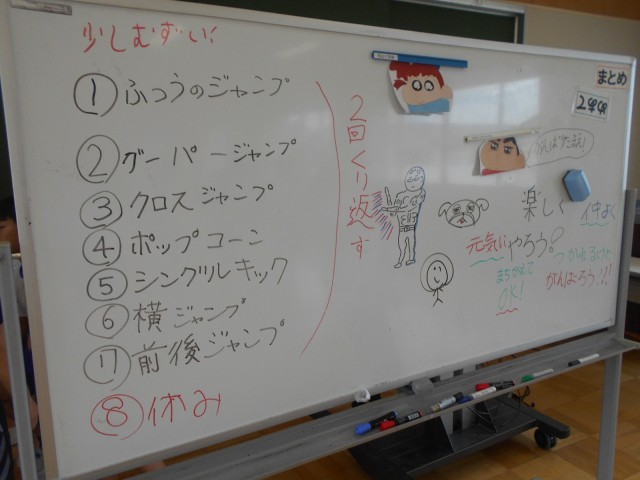 少しむずい!
①ふつうのジャンプ
②グーパージャンプ
③クロスジャンプ
④ポップコーン
⑤シングルキック
⑥横ジャンプ
⑦前後ジャンプ
⑧休み
2回くり返す
まとめ
楽しく 仲よく
元気にやろう!
まちがえて
OK!
がんばろう!!!